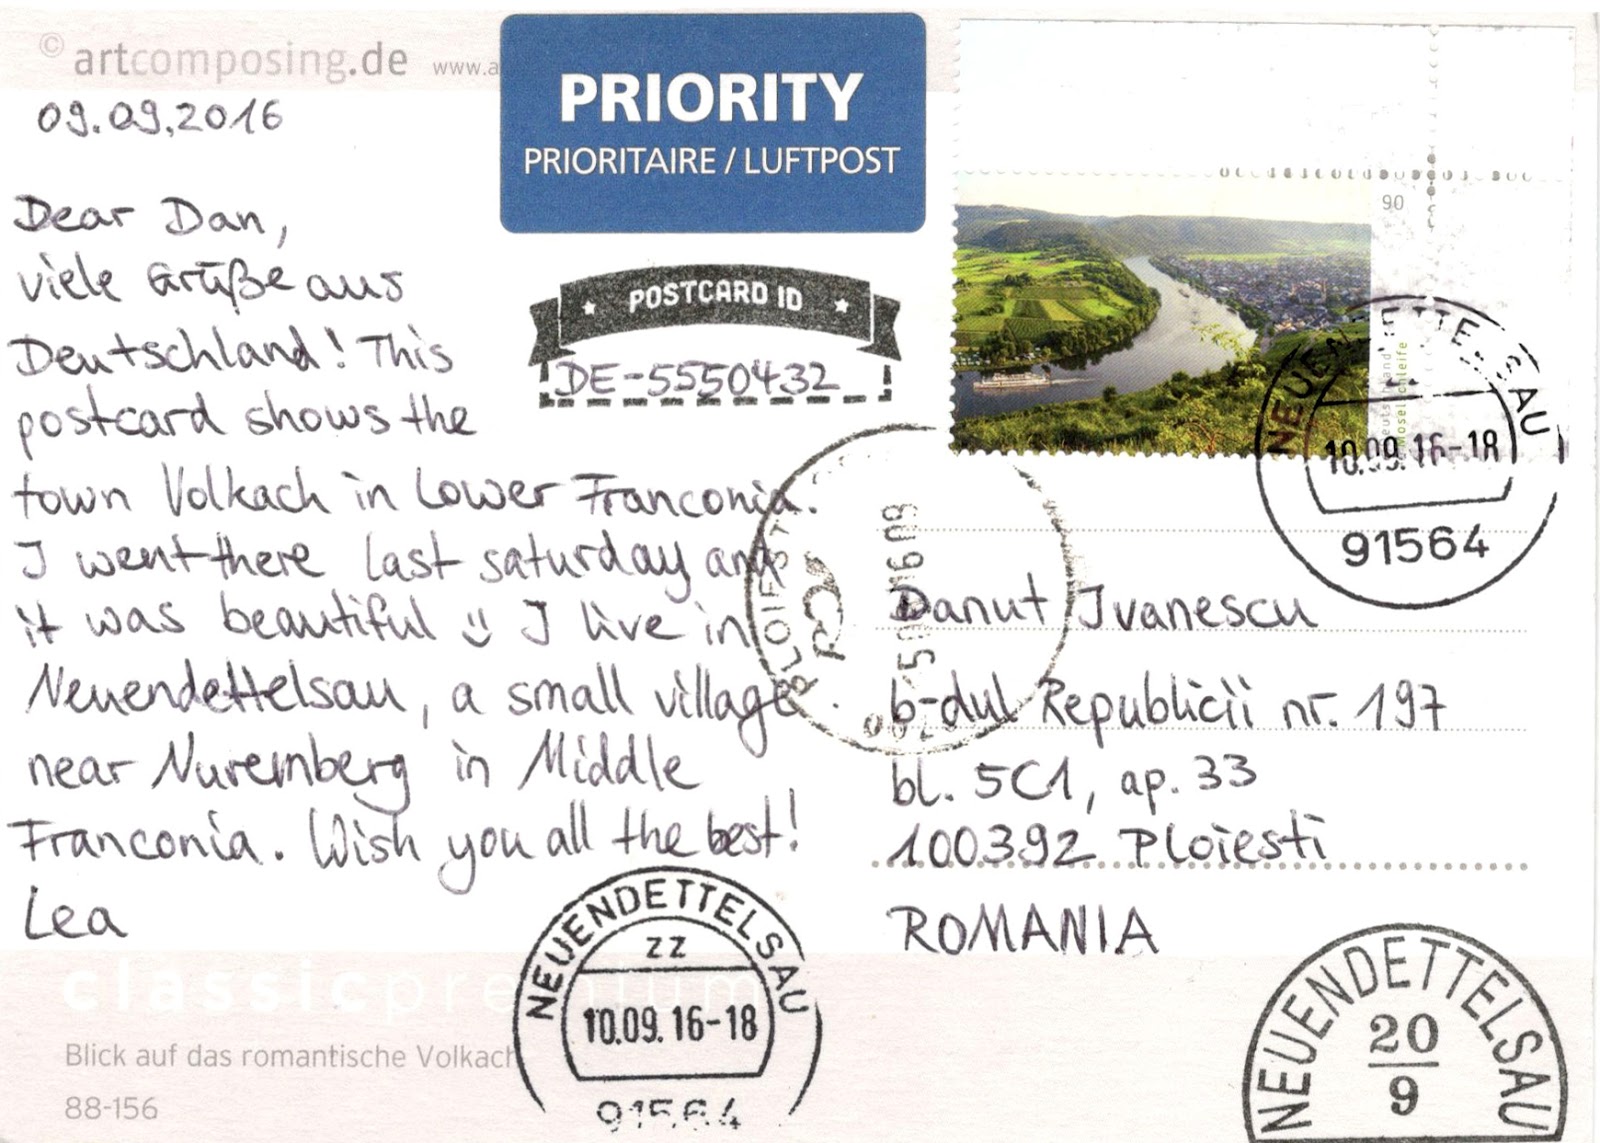 © artcomposing.de www.a
09.09.2016
Dear Dan,
viele Grüße aus
Deutschland! This
postcard shows the
town Volkach in Lower Franconia.
I went there last saturday and
it was beautiful I live in
Neuendettelsau, a small village
near Nuremberg in Middle
Franconia. Wish you all the best!
Lea
classicpremium
Blick auf das romantische Volkach
88-156
PRIORITY
PRIORITAIRE / LUFTPOST
POSTCARD ID
DE-5550432
90
Deutschland
Moselschleife
NEUENDETTELSAU
10.09.16-18
91564
PLOIESTI
Danut Ivanescu
b-dul Republicii nr. 197
bl. 5C1, ap. 33
100392 Ploiesti
ROMANIA
NEUENDETTELSAU
zz
10.09.16-18
91564
NEUENDETTELSAU
20
9